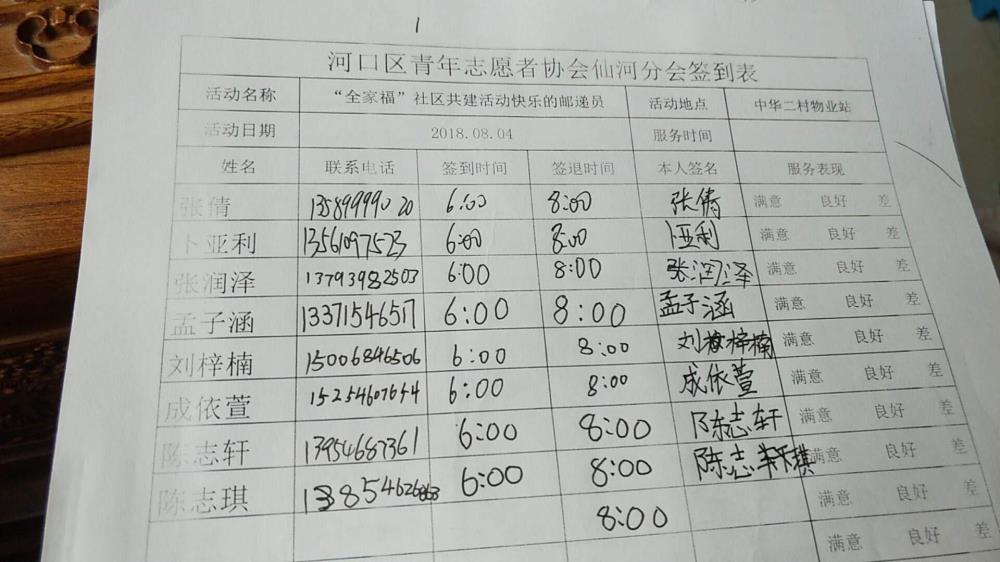 1
河口区青年志愿者协会仙河分会签到表
活动名称 “全家福”社区共建活动快乐的邮递员 活动地点 中华二村物业站
活动日期 2018.08.04 服务时间
姓名 联系电话 签到时间 签退时间 本人签名 服务表现
张倩 13589999020 6:00 8:00 张倩 满意 良好 差
卜亚利 13561097523 6:00 8:00 卜亚利 满意 良好 差
张润泽 13793982503 6:00 8:00 张润泽 满意 良好 差
孟子涵 13371546517 6:00 8:00 孟子涵 满意 良好 差
刘梓楠 15006846506 6:00 8:00 刘梓楠 满意 良好 差
成依萱 15254607654 6:00 8:00 成依萱 满意 良好 差
陈志轩 13954687361 6:00 8:00 陈志轩 满意 良好 差
陈志琪 6:00 8:00 陈志琪 满意 良好 差
8:00 满意 良好 差
满意 良好 差